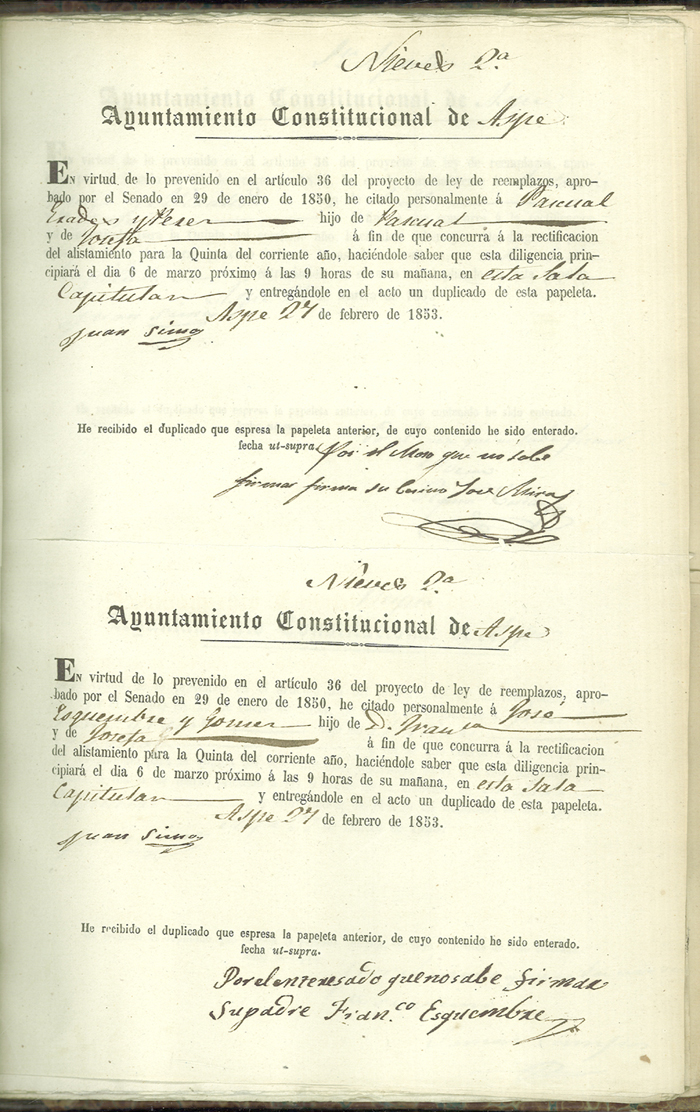 Nieves 2.ª
Ayuntamiento Constitucional de Aspe
EN virtud de lo prevenido en el artículo 36 del proyecto de ley de reemplazos, apro-
bado por el Senado en 29 de enero de 1850, he citado personalmente á Pascual
y Perez hijo de Pascual
y de Josefa á fin de que concurra á la rectificacion
del alistamiento para la Quinta del corriente año, haciéndole saber que esta diligencia prin-
cipiará el dia 6 de marzo próximo á las 9 horas de su mañana, en esta Sala
Capitular y entregándole en el acto un duplicado de esta papeleta.
Aspe 27 de febrero de 1853.
Juan Simon
He recibido el duplicado que espresa la papeleta anterior, de cuyo contenido he sido enterado.
fecha ut-supra. Por el Mozo que no sabe
firmar firma su Jose Mira
Nieves 2.ª
Ayuntamiento Constitucional de Aspe
EN virtud de lo prevenido en el artículo 36 del proyecto de ley de reemplazos, apro-
bado por el Senado en 29 de enero de 1850, he citado personalmente á José
Esquembre y Gomez hijo de D. Fran.co
y de Josefa á fin de que concurra á la rectificacion
del alistamiento para la Quinta del corriente año, haciéndole saber que esta diligencia prin-
cipiará el dia 6 de marzo próximo á las 9 horas de su mañana, en esta Sala
Capitular y entregándole en el acto un duplicado de esta papeleta.
Aspe 27 de febrero de 1853.
Juan Simon
He recibido el duplicado que espresa la papeleta anterior, de cuyo contenido he sido enterado.
fecha ut-supra.
Por el interesado que no sabe firmar
Su padre Fran.co Esquembre